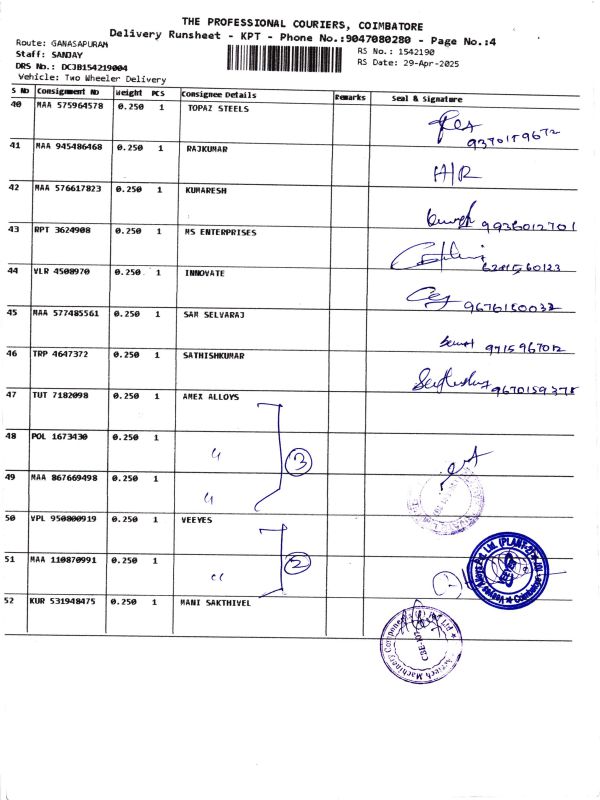 THE PROFESSIONAL COURIERS, COIMBATORE
Delivery Runsheet - KPT - Phone No.:9047080280 - Page No.:4
Route: GANASAPURAM
RS No.: 1542190
Staff: SANJAY
RS Date: 29-Apr-2025
DRS No.: DCJB154219004
Vehicle: Two Wheeler Delivery
S No Consignment No Weight PCS Consignee Details Remarks Seal & Signature
40 MAA 575964578 0.250 1 TOPAZ STEELS
41 MAA 945486468 0.250 1 RAJKUMAR H/R
42 MAA 576617823 0.250 1 KUMARESH 9936012701
43 RPT 3624908 0.250 1 MS ENTERPRISES
44 VLR 4508970 0.250 1 INNOVATE
45 MAA 577485561 0.250 1 SAM SELVARAJ
46 TRP 4647372 0.250 1 SATHISHKUMAR
47 TUT 7182098 0.250 1 AMEX ALLOYS
48 POL 1673430 0.250 1 〃 3
49 MAA 867669498 0.250 1 〃
50 VPL 950800919 0.250 1 VEEYES
51 MAA 110870991 0.250 1 〃 2
52 KUR 531948475 0.250 1 MANI SAKTHIVEL